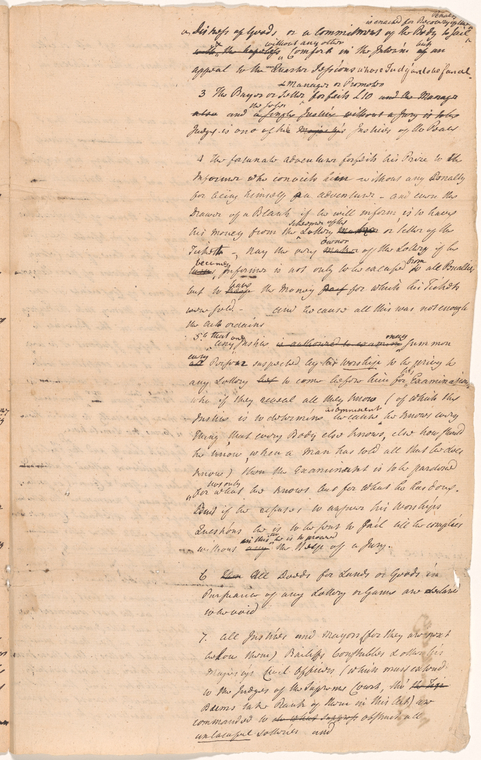 ready
is enacted for Recovery
a Distress of Goods, or a Commitment of the Body to Jail
without any other but
with the hopeless Comfort in the Interim of an
appeal to the Quarter Sessions whose Judgment is final.
a Manager or Promoter
3 The Buyer or Seller forfeits £10 and the Manager
the Justice
and a single Justice without a Jury is to be
Judge is one of his Majesty's Justices of the Peace
4 The fortunate adventurer forfeits his Prize to the
Informer who convicts him without any Penalty
for being himself an adventurer - and even the
Drawer of a Blank if he will inform is to have
Schemer of the
his Money from the Lottery maker or Seller of the
owner
Tickets, nay the very maker of the Lottery if he
becomes from
turns Informer is not only to be excused all Penalties
have
but to keep the Money for which his Tickets
were sold. and because all this was not enough
the Act ordains
5th that
any Justice is authorised to examine may summon
every
all Person suspected by his Worship to be privy to
any Lottery to come before him for Examination
who if they reveal all they know (of which the
Justice is to determine because he knows every
thing that every Body else knows, else how should
he know when a man has told all that he does
know) then the Examinant is to be pardoned
not only
for what he knows but for what he has done.
But if he refuses to answer his Worships
Questions he is to be sent to Jail till he complies
in this he is to proceed
without the Help of a Jury.
6 All Deeds for Lands or Goods in
Pursuance of any Lottery or Game are declared
to be void
7. All Justices and Mayors (for they are next
below them) Bailiffs Constables & other his
Majestys Civil Officers (which must extend
to the Judges of the Supreme Court, tho' the
take Rank of them in this Act) are
commanded to obstruct all
unlawful Lotteries and